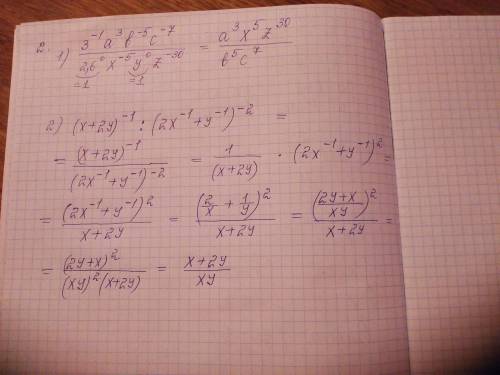 2. 1) (3⁻¹a³b⁻⁵c⁻⁷)/(2,6⁰x⁻⁵y⁰z⁻³⁰) = (a³x⁵z³⁰)/(b⁵c⁷)
=1 =1
2) (x+2y)⁻¹ : (2x⁻¹+y⁻¹)⁻² =
= (x+2y)⁻¹/(2x⁻¹+y⁻¹)⁻² = 1/(x+2y) · (2x⁻¹+y⁻¹)² =
= (2x⁻¹+y⁻¹)²/(x+2y) = (2/x + 1/y)²/(x+2y) = ((2y+x)/(xy))²/(x+2y) =
= (2y+x)²/((xy)²(x+2y)) = (x+2y)/(xy)